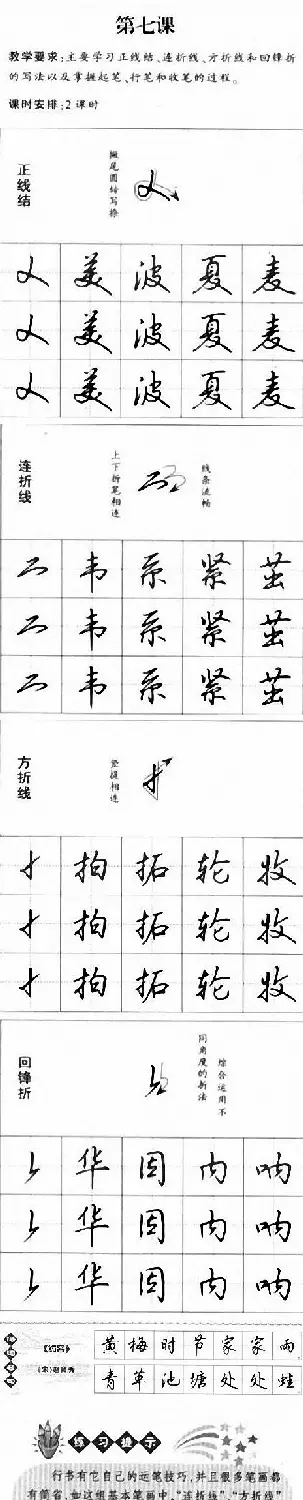 第七课
教学要求:主要学习正线结、连折线、方折线和回锋折
的写法以及掌握起笔、行笔和收笔的过程。
课时安排:2课时
正线结
撇尾圆转写捺
美 波 夏 麦
美 波 夏 麦
美 波 夏 麦
连折线
上下折笔相连
线条流畅
韦 系 紧 茧
韦 系 紧 茧
韦 系 紧 茧
方折线
竖提相连
拍 拓 轮 牧
拍 拓 轮 牧
拍 拓 轮 牧
回锋折
综合运用不
同角度的折法
华 因 内 呐
华 因 内 呐
华 因 内 呐
《约客》
黄梅时节家家雨,
(宋)赵师秀
青草池塘处处蛙
练习提示
行书有它自己的运笔技巧,并且很多笔画都
有简省,如这组基本笔画中,"连折线"、"方折线"